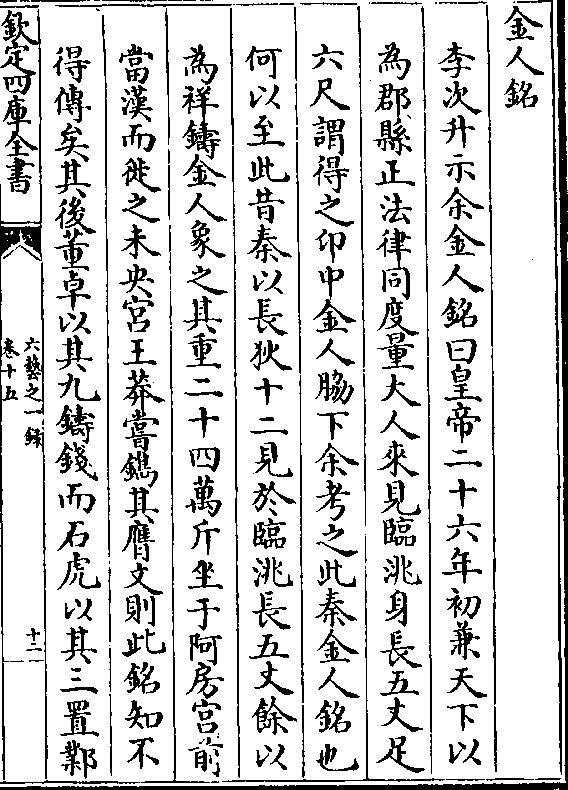 金人銘
李次升示余金人銘曰皇帝二十六年初兼天下以
為郡縣正法律同度量大人來見臨洮身長五丈足
六尺謂得之卬中金人脇下余考之此秦金人銘也
何以至此昔秦以長狄十二見於臨洮長五丈餘以
為祥鑄金人象之其重二十四萬斤坐于阿房宮前
當漢而徙之未央宮王莽嘗鐫其膺文則此銘知不
得傳矣其後董卓以其九鑄錢而石虎以其三置鄴
欽定四庫全書
六藝之一錄
卷十五
十三